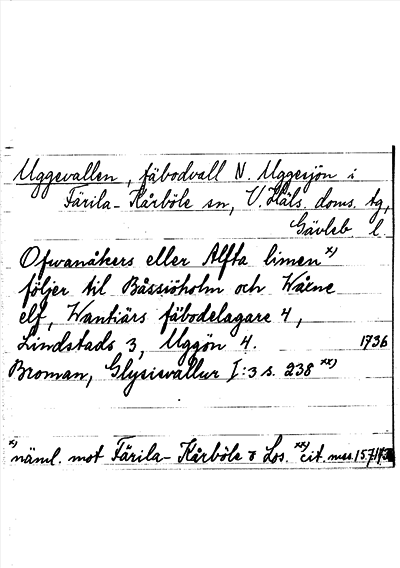 Uggevallen, fäbodvall N. Uggesjön i
Färila-Kårböle sn, V. Häls. doms. tg,
Gävleb l.
Ofwanåkers eller Alfta limen x)
följer til Båssiöholm och Wåxne
elf, Wantiärs fäbodelagare 4,
Lindstads 3, Uggön 4. 1736
Broman, Glysisvallur I:3 s. 238 xx)
x) näml. mot Färila-Kårböle o Los. xx) cit. mes